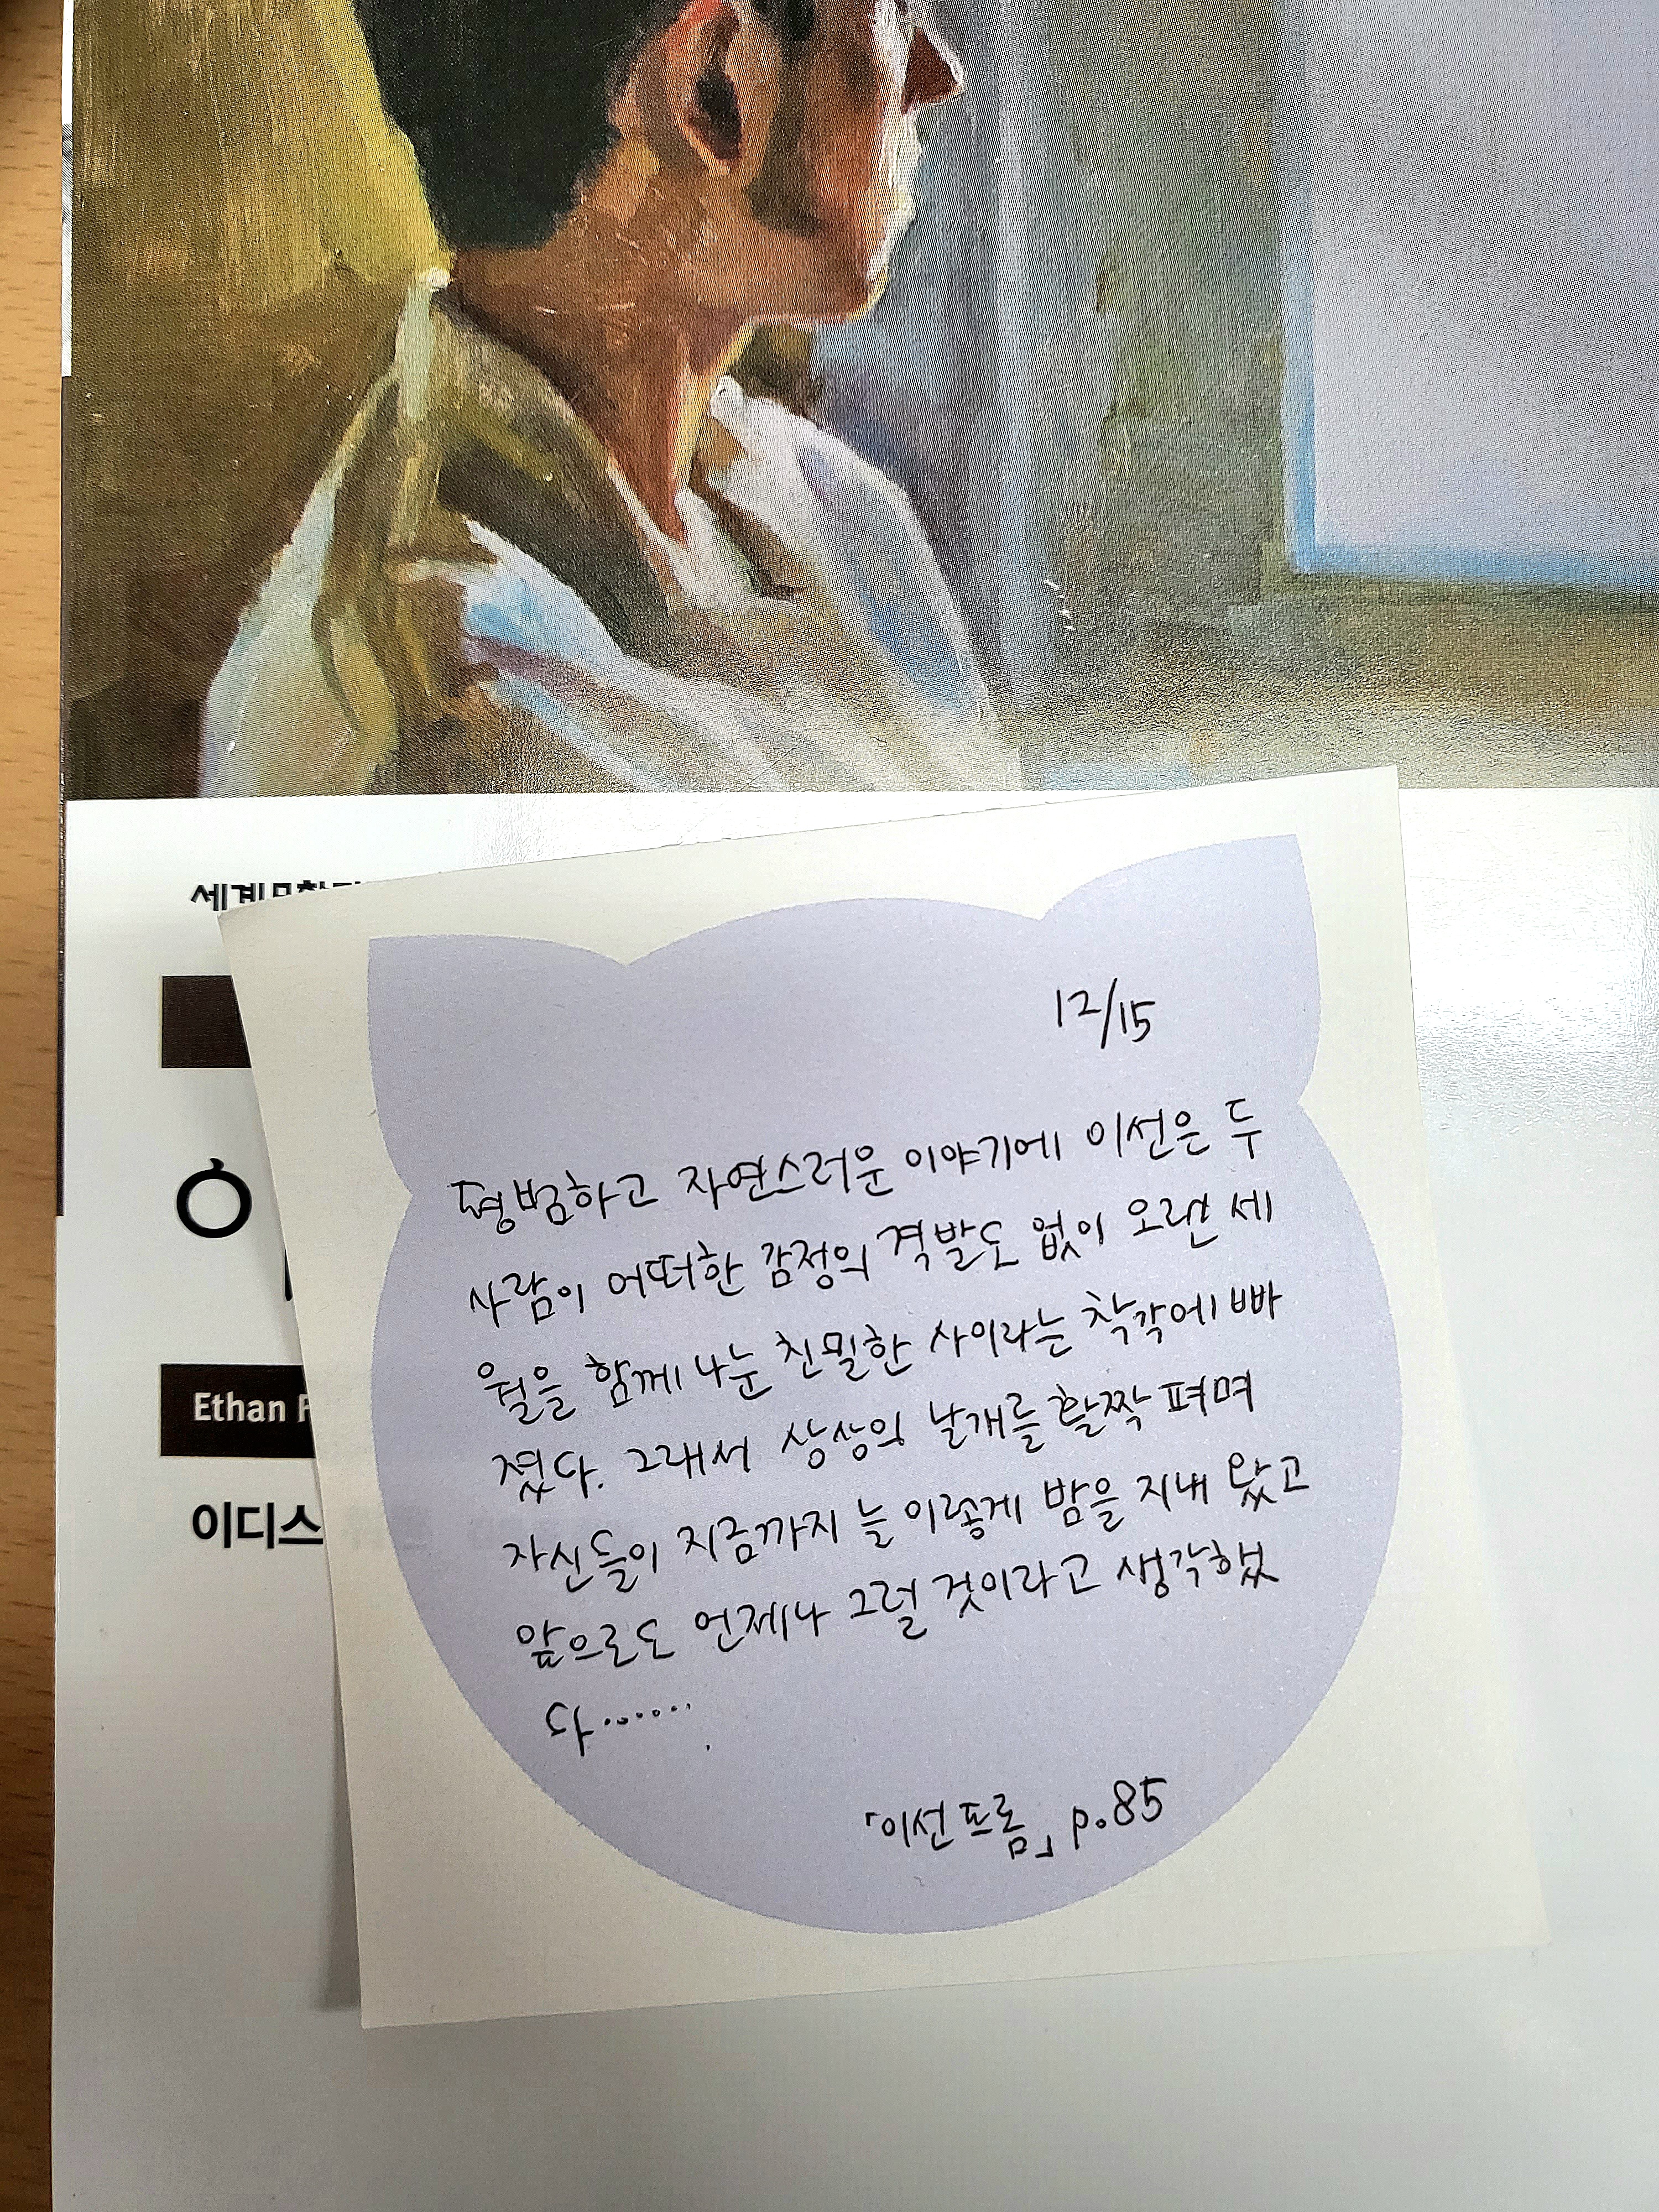 세계문학
Ethan F
이디스
12/15
평범하고 자연스러운 이야기에 이선은 두
사람이 어떠한 감정의 격발도 없이 오랜 세
월을 함께 나눈 친밀한 사이라는 착각에 빠
졌다. 그래서 상상의 날개를 활짝 펴며
자신들이 지금까지 늘 이렇게 밤을 지내 왔고
앞으로도 언제나 그럴 것이라고 생각했
다…….
「이선 프롬」 p.85